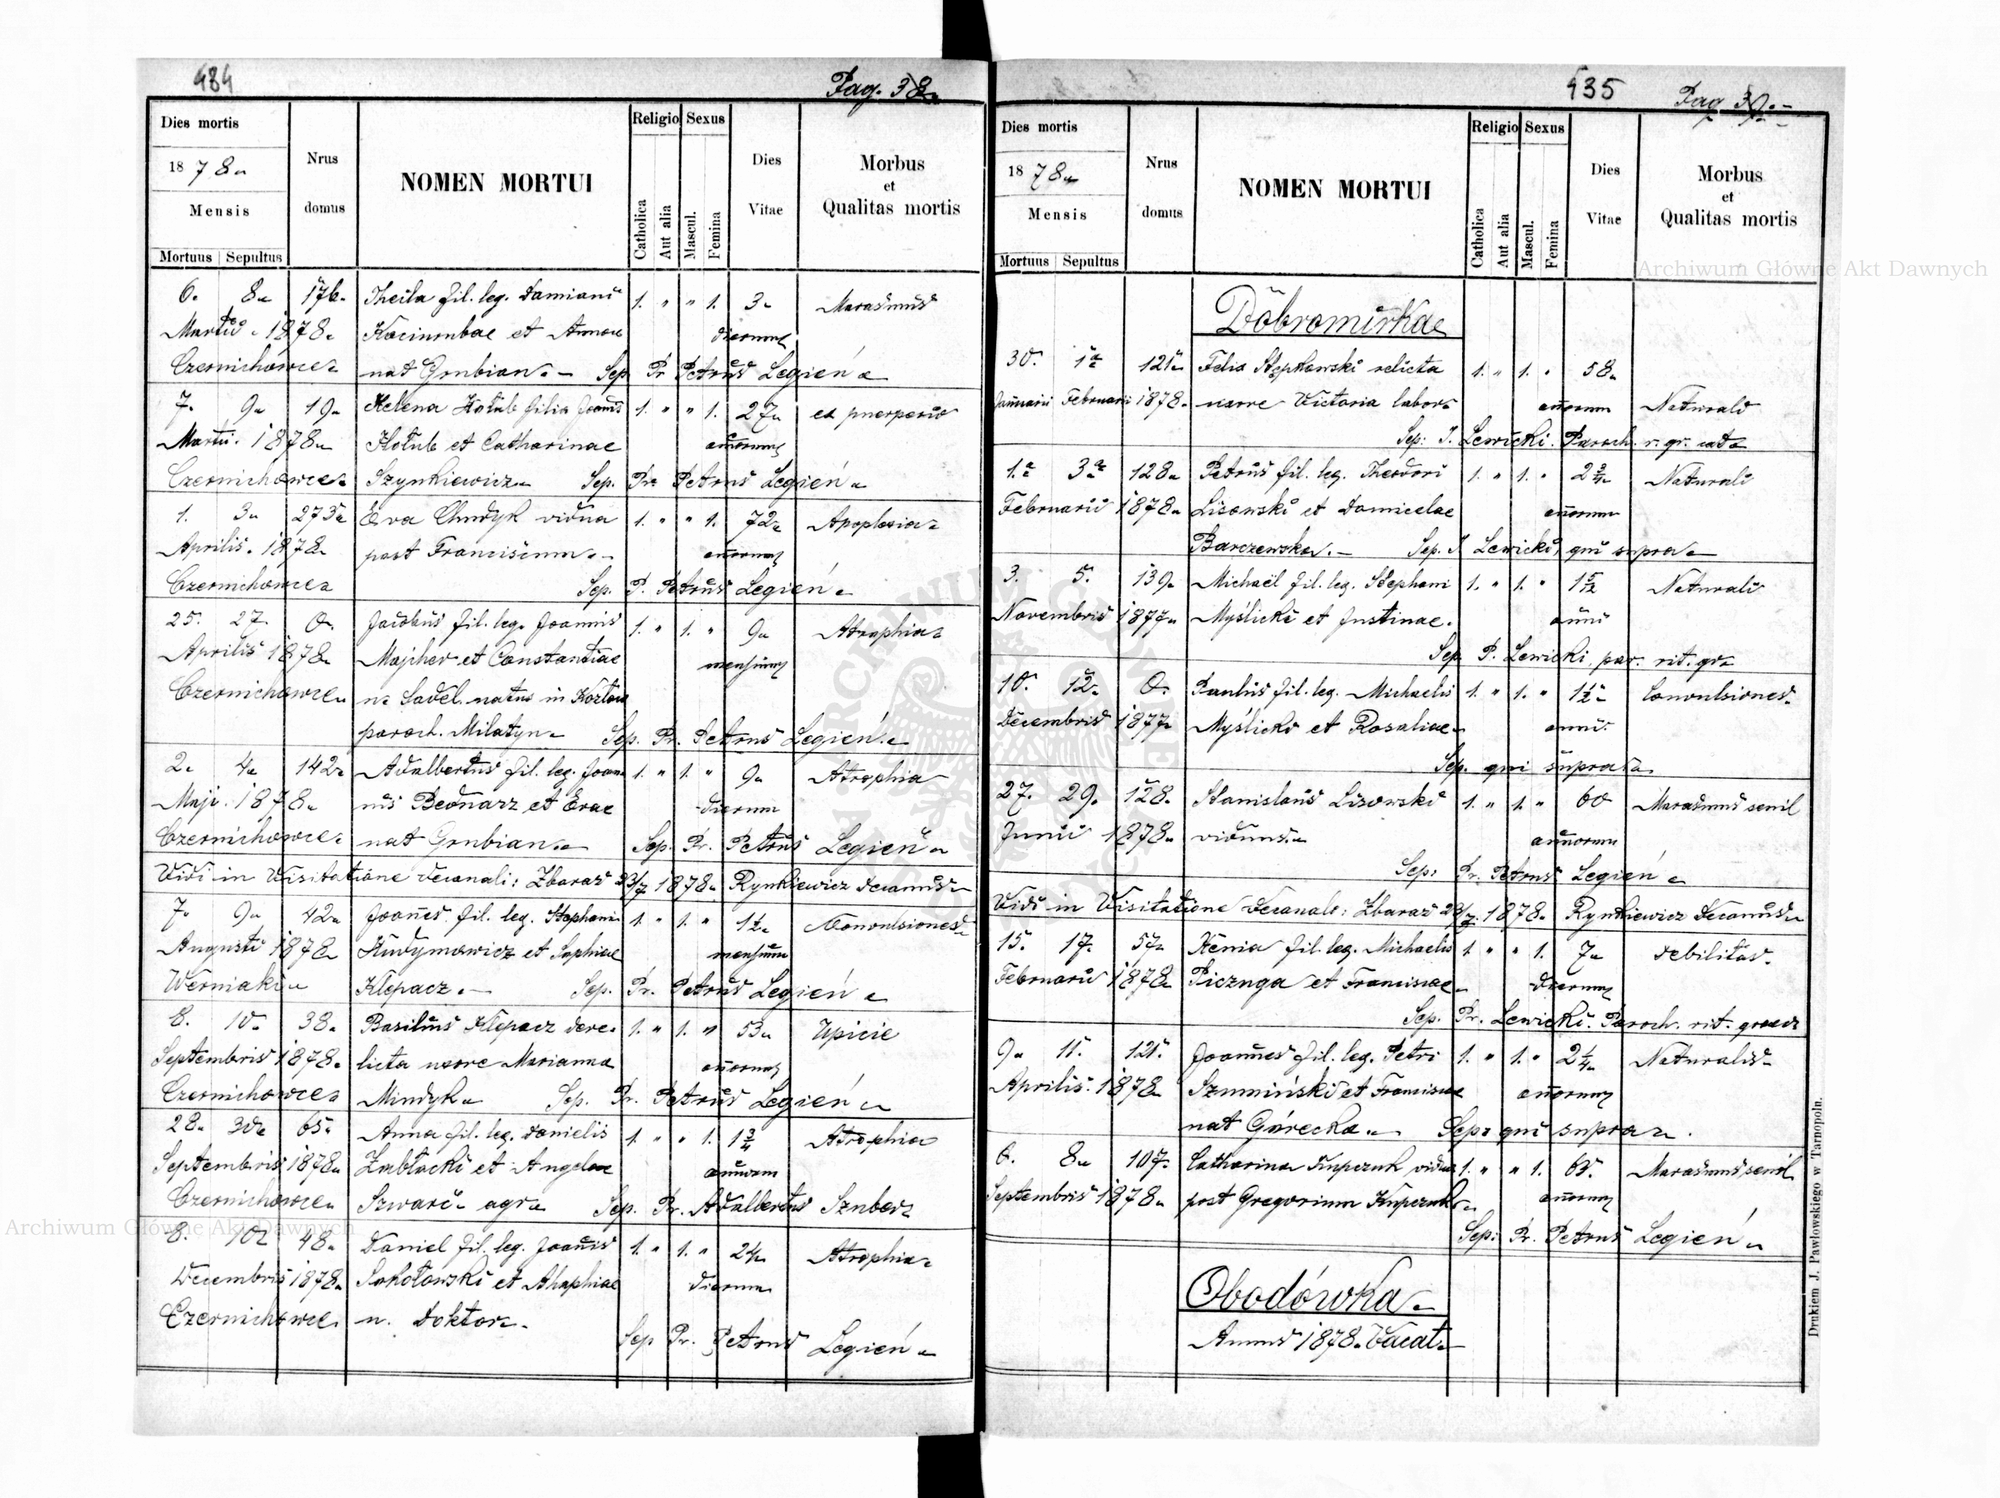 484
Pag. 38.
Dies mortis
Nrus
domus
NOMEN MORTUI
Religio
Sexus
Dies
Vitae
Morbus
et
Qualitas mortis
1878.
Mensis
Mortuus
Sepultus
Catholica
Aut alia
Mascul.
Femina
6. 8. 176. Thecla fil. leg. Damiani 1. " " 1. 3. Marasmus
Martii. 1878. et Annae dierum
Czernichowce. nat Grubian. - Sep Pr Petrus Legień.
7. 9. 19. Helena Hołub filia Joannis 1. " " 1. 27. ex puerperio
Martii. 1878. Hołub et Catharinae annorum
Czernichowce. Szynkiewicz. Sep. Pr. Petrus Legień.
1. 3. 273. Eva Chudyk vidua 1. " " 1. 72. Apoplexia.
Aprilis. 1878. post Franciscum. annorum
Czernichowce. Sep. P. Petrus Legień.
25. 27. 0. Jacobus fil. leg. Joannis 1. " 1. " 9. Atrophia.
Aprilis 1878. Majcher et Constantiae mensium
Czernichowce. natus in
paroch. Milatyn. Sep. Pr. Petrus Legień.
2. 4. 142. Adalbertus fil. leg. Joan- 1. " 1. " 9. Atrophia
Maji. 1878. nis Bednarz et Evae dierum
Czernichowce. nat Grubian. Sep. Pr. Petrus Legień.
Vidi in Visitatione decanali: Zbaraż 23/7 1878. Rynkiewicz decanus.
7. 9. 42. Joannes fil. leg. Stephani 1. " 1. " 1½. Convulsiones.
Augusti 1878. Kudymowicz et Sophiae mensium
Werniaki. Klepacz. - Sep. Pr. Petrus Legień.
8. 10. 38. Basilius Klepacz dere- 1. " 1. " 53. Upicie
Septembris 1878. licta uxore Marianna annorum
Czernichowce Mindyk. Sep. Pr. Petrus Legień.
28. 30. 65. Anna fil. leg. Danielis 1. " " 1. 1¾ Atrophia
Septembris 1878. Zabłocki et Angelae annorum
Czernichowce. Szwarc. agr. Sep. Pr. Adalbertus Szuber.
8. 10. 48. Daniel fil. leg. Joannis 1. " 1. " 24. Atrophia.
Decembris 1878. Sokołowski et Ahaphiae dierum
Czernichowce. n. Doktor. Sep Pr. Petrus Legień.
435
Pag 39.
Dies mortis
Nrus
domus
NOMEN MORTUI
Religio
Sexus
Dies
Vitae
Morbus
et
Qualitas mortis
1878.
Mensis
Mortuus
Sepultus
Catholica
Aut alia
Mascul.
Femina
Dobromirka
30. 1. 121. Felix Stępkowski relicta 1. " 1. " 58.
Januarii Februarii 1878. uxore Victoria labor. annorum Naturalis
Sep: J. Lewicki. Paroch. r. gr. cat.
1. 3. 128. Petrus fil. leg. Theodori 1. " 1. " 2¾ Naturalis
Februarii 1878. Lisowski et Domicelae annorum
Barczewska. - Sep. J Lewicki, qui supra.
3. 5. 139. Michaël fil. leg. Stephani 1. " 1. " Naturalis
Novembris 1877. Myślicki et Justinae. anni
Sep P. Lewicki par. rit. gr.
10. 12. 0. Paulus fil. leg. Michaelis 1. " 1. " 1½ Convulsiones.
Decembris 1877. Myślicki et Rosaliae. anni.
Sep. qui supra.
27. 29. 128. Stanislaus Lisowski 1. " 1. " 60 Marasmus senil
Junii 1878. viduus. annorum
Sep: Pr. Petrus Legień.
Vidi in Visitatione decanali: Zbaraż 23/7. 1878. Rynkiewicz Decanus.
15. 17. 57. Xenia fil. leg. Michaelis 1. " " 1. 7. debilitas.
Februarii 1878. et Franciscae. dierum
Sep. Pr. Lewicki. Paroch. rit. graeci
9. 11. 121. Joannes fil. leg. Petri 1. " 1. " 2¼ Naturalis
Aprilis. 1878. Szumiński et Franciscae annorum
nat Górecka. Sep: qui supra.
6. 8. 107. Catharina Kupczuk vidua 1. " " 1. 65. Marasmus senil
Septembris 1878. post Gregorium Kupczuk. annorum
Sep: Pr. Petrus Legień.
Obodówka.
Annus 1878. Vacat.
Drukiem J. Pawłowskiego w Tarnopolu.
Archiwum Główne Akt Dawnych
Archiwum Główne Akt Dawnych